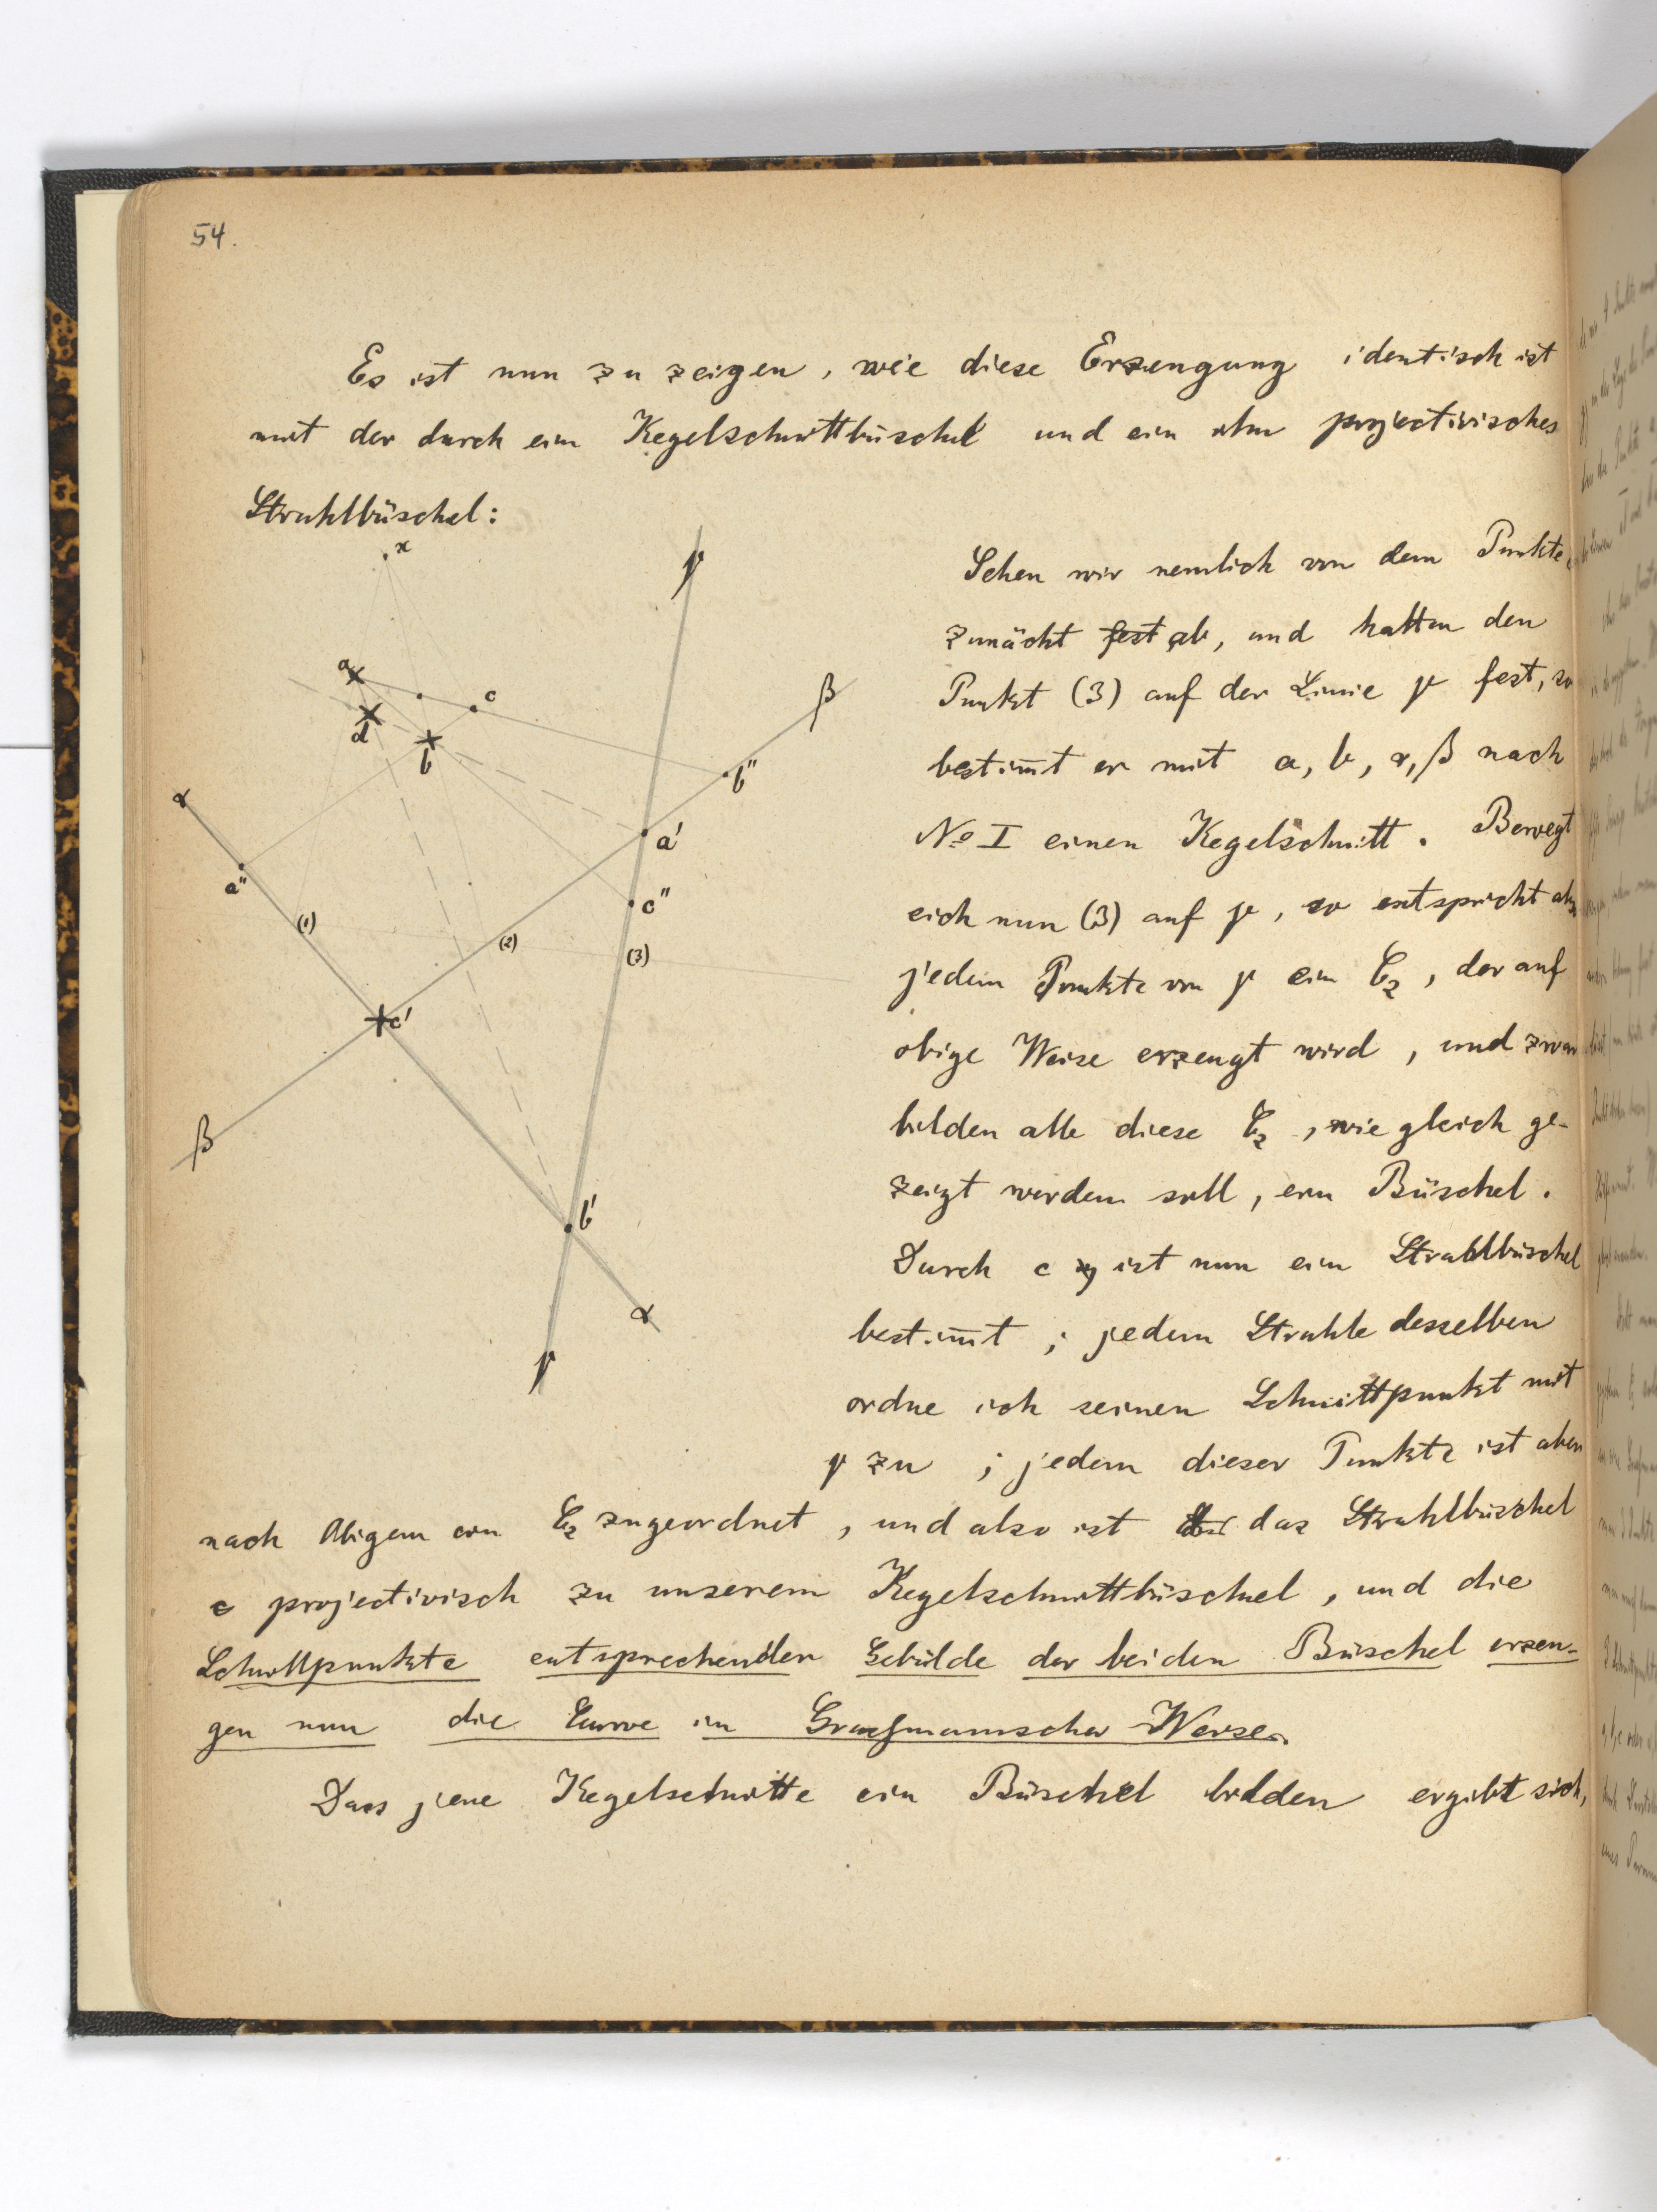 54.
Es ist nun zu zeigen, wie diese Erzeugung identisch ist
mit der durch ein Kegelschnittbüschel und ein ihm projectivisches
Strahlbüschel:
x
γ
a
c
β
d
b
b"
α
a'
a"
c"
(1)
(2)
(3)
c'
β
b'
α
γ
Sehen wir nemlich von dem Punkte c
zunächt fest ab, und halten den
Punkt (3) auf der Linie γ fest, so
bestim̄t er mit a, b, α, β nach
No I einen Kegelschnitt. Bewegt
sich nun (3) auf γ, so entspricht also
jedem Punkte von γ ein C₂, der auf
obige Weise erzeugt wird, und zwar
bilden alle diese C₂, wie gleich ge-
zeigt werden soll, ein Büschel.
Durch c ist nun ein Strahlbüschel
bestim̄t; jedem Strahle desselben
ordne ich seinen Schnittpunkt mit
γ zu; jedem dieser Punkte ist aber
nach Obigem ein C₂ zugeordnet, und also ist das Strahlbüschel
c projectivisch zu unserem Kegelschnittbüschel, und die
Schnittpunkte entsprechender Gebilde der beiden Büschel erzeu-
gen nun die Curve in Graßmannscher Weise.
Dass jene Kegelschnitte ein Büschel bilden ergibt sich,